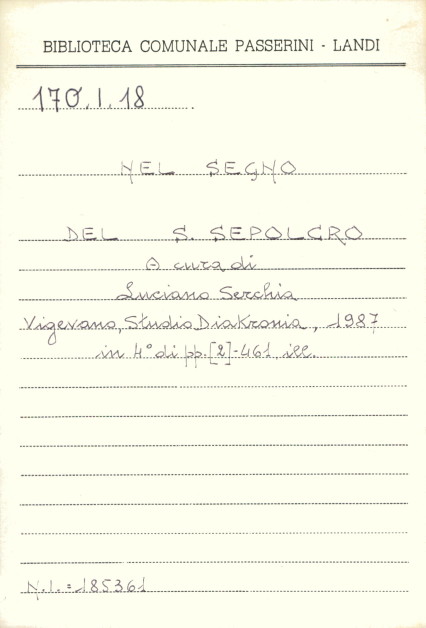 BIBLIOTECA COMUNALE PASSERINI - LANDI
170.I.18
NEL SEGNO
DEL S. SEPOLCRO
A cura di
Luciano Serchia
Vigevano, Studio Diakronia, 1987
in 4° di pp. [2]-461 ill.
N.I. = 185361